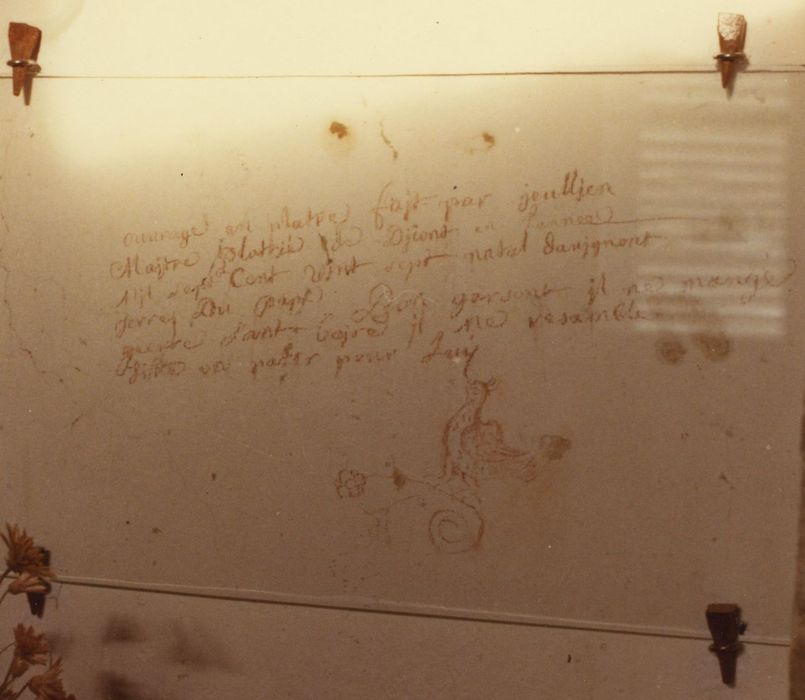 ouvrage en platre fajt par joulljen
Majtre platrie de Djiont en Lannee
Mil sept Cent vint sept natal davignont
terres Du Pape Bon garsont il ne mange
guerre sant boire il ne resamble
ditte un pater pour Luy